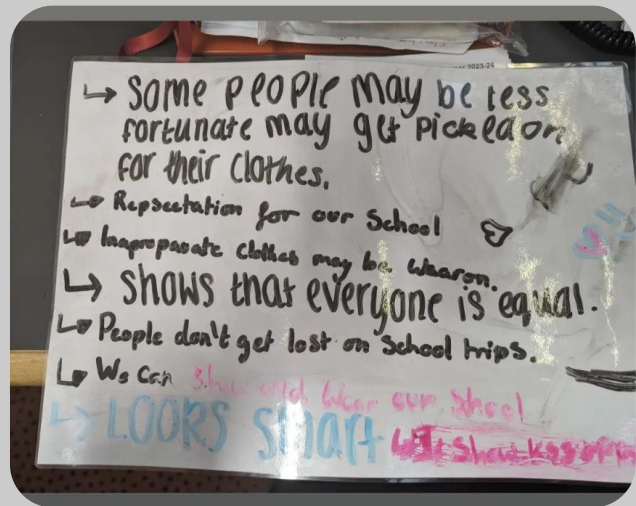 2023-24
↳ Some people may be less
fortunate may get picked on
for their clothes.
↳ Repsectation for our School
↳ Inapropavate clothes may be wearon.
↳ Shows that everyone is equal.
↳ People don't get lost on School trips.
↳ We can and wear our
↳ LOOKS smart